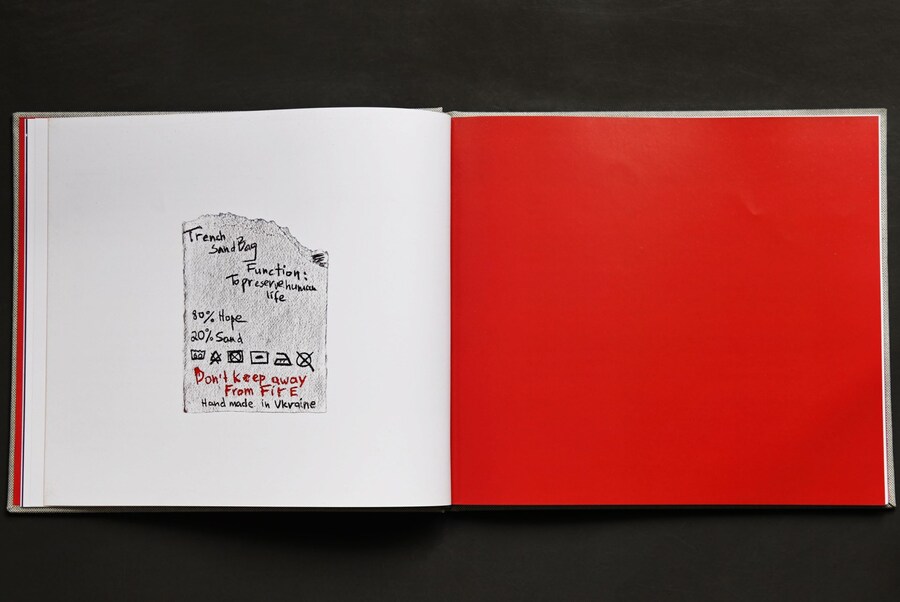 Trench
Sand Bag
Function:
To preserve human
life
80% Hope
20% Sand
Don't keep away
From FirE
Hand made in Ukraine